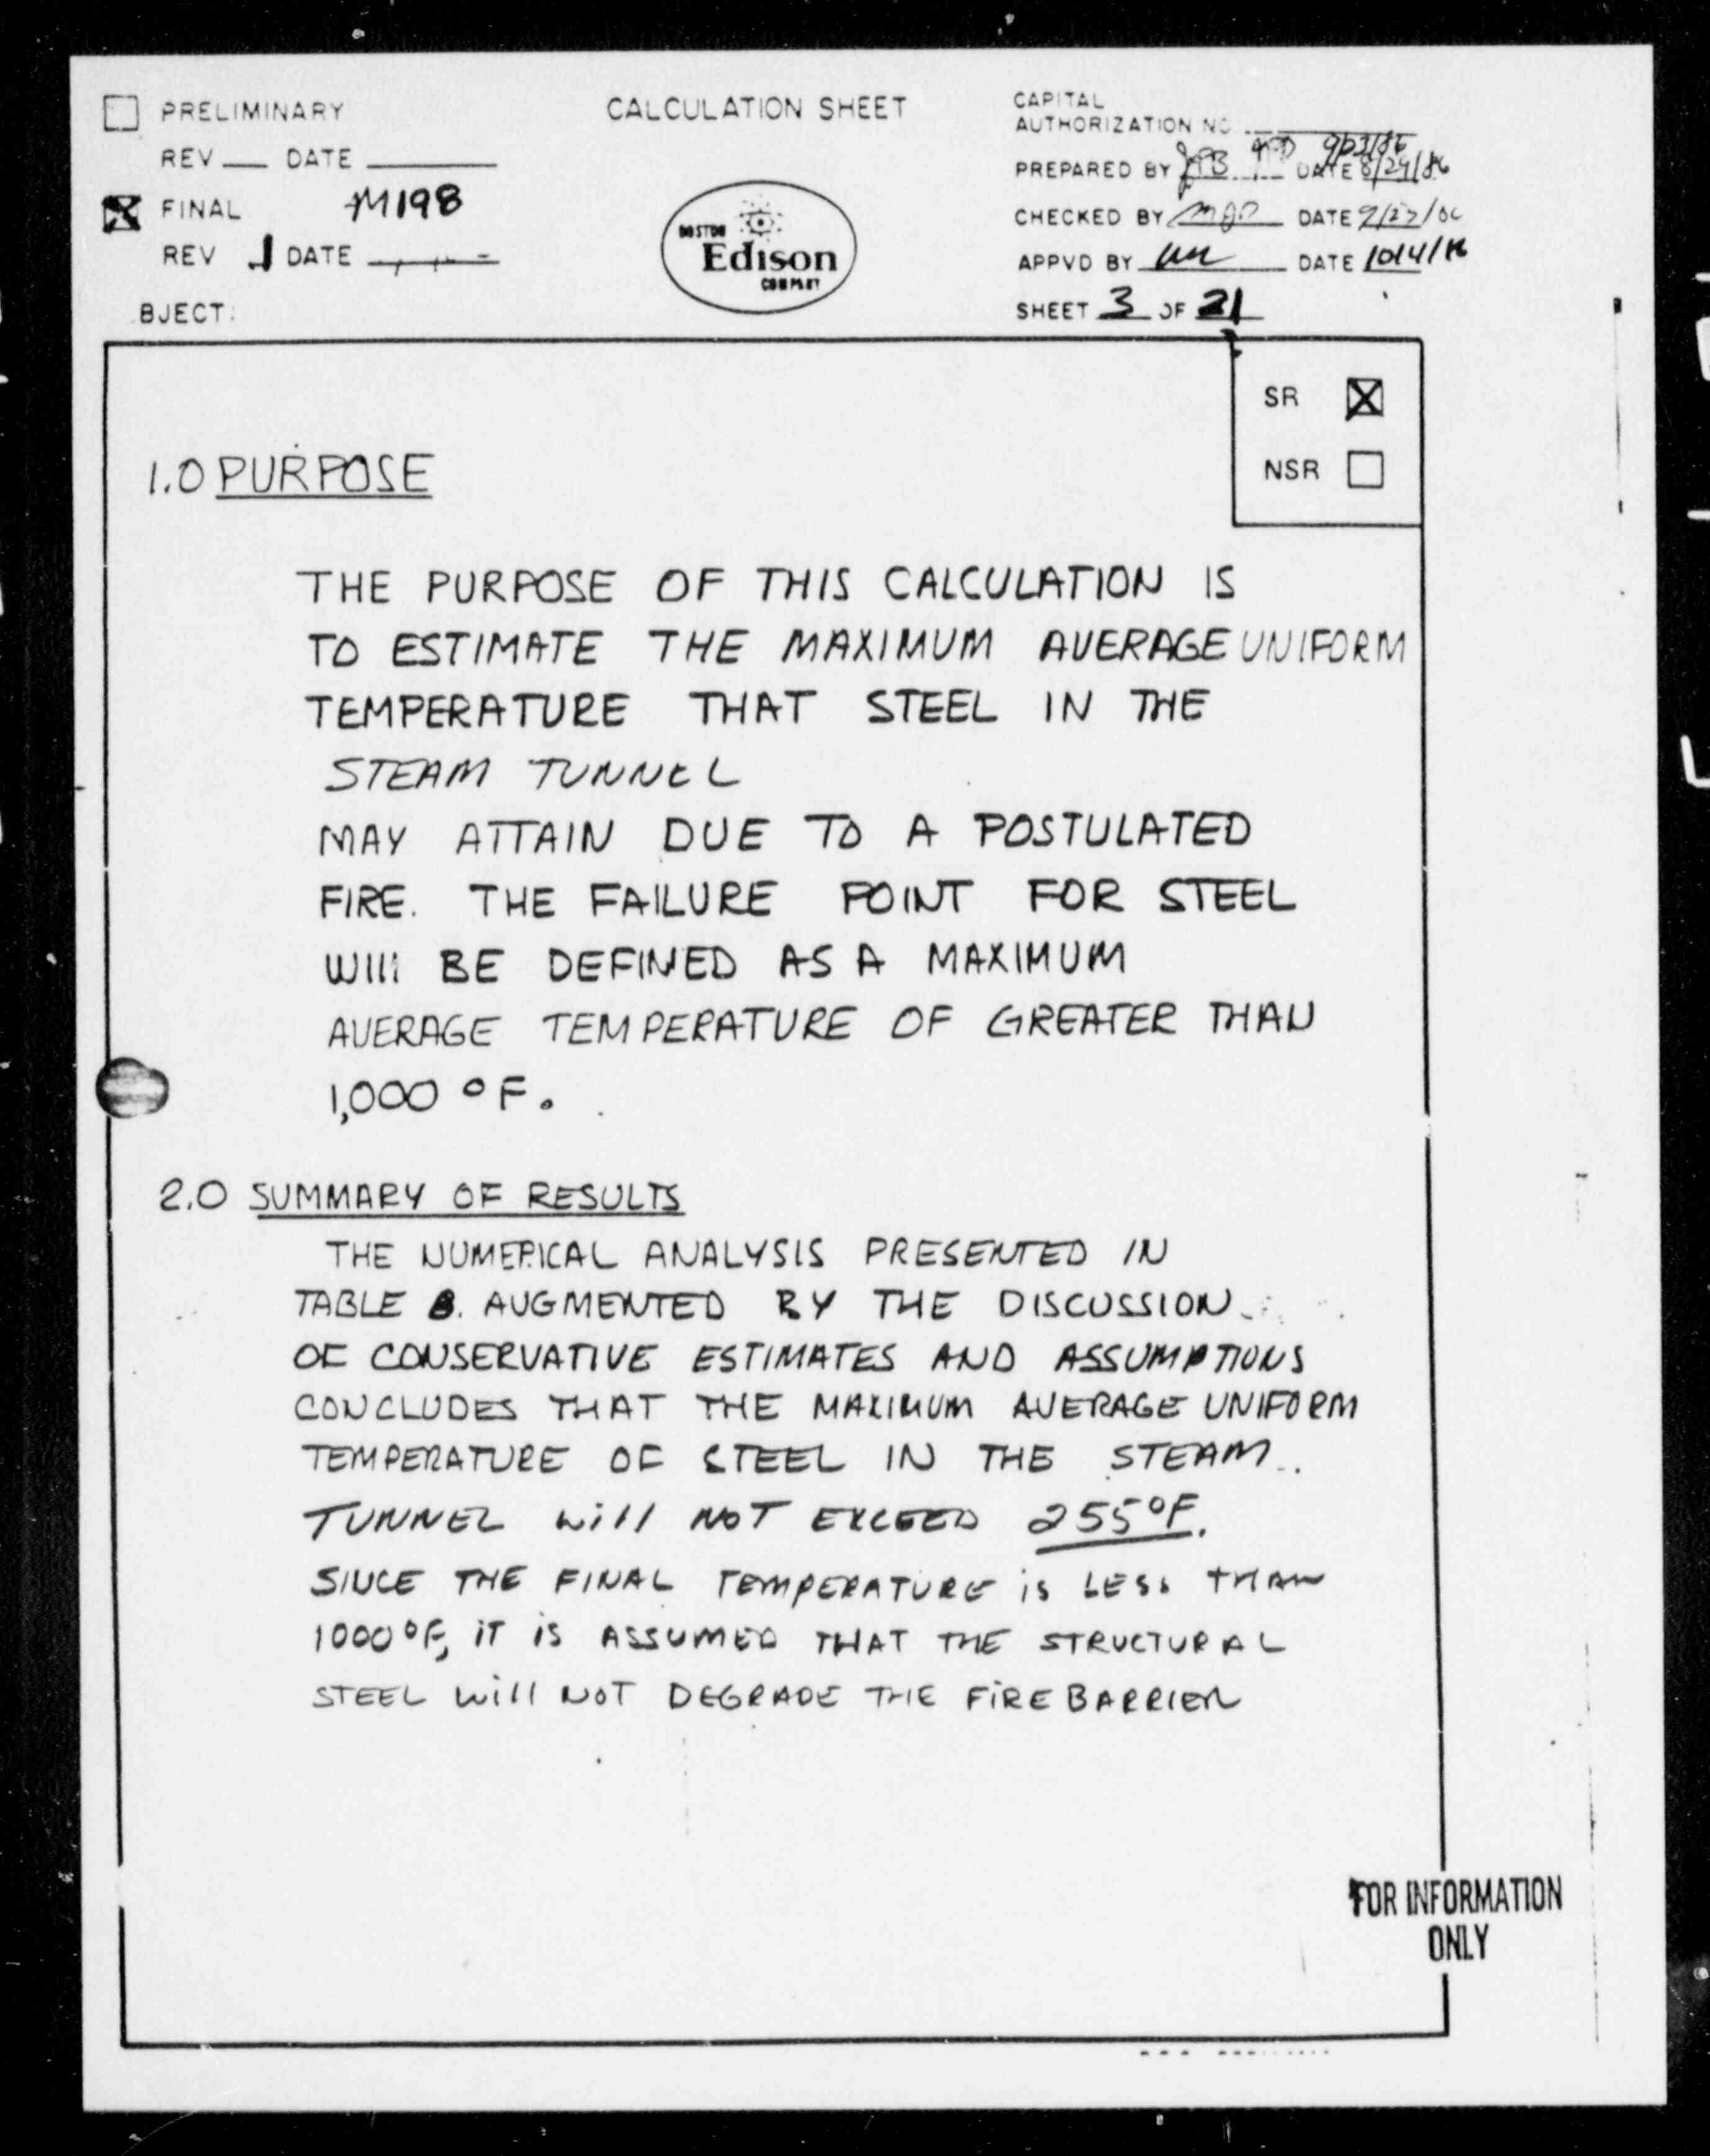 PRELIMINARY
REV DATE
FINAL M198
REV 1 DATE
BJECT:
CALCULATION SHEET
BOSTON
Edison
COMPANY
CAPITAL
AUTHORIZATION NO
PREPARED BY DATE 8/29/86
CHECKED BY DATE
APPVD BY DATE
SHEET 3 OF 21
SR
NSR
1.0 PURPOSE
THE PURPOSE OF THIS CALCULATION IS
TO ESTIMATE THE MAXIMUM AVERAGE UNIFORM
TEMPERATURE THAT STEEL IN THE
STEAM TUNNEL
MAY ATTAIN DUE TO A POSTULATED
FIRE. THE FAILURE POINT FOR STEEL
Will BE DEFINED AS A MAXIMUM
AVERAGE TEMPERATURE OF GREATER THAN
1,000 °F.
2.0 SUMMARY OF RESULTS
THE NUMERICAL ANALYSIS PRESENTED IN
TABLE 8. AUGMENTED BY THE DISCUSSION
OF CONSERVATIVE ESTIMATES AND ASSUMPTIONS
CONCLUDES THAT THE MAXIMUM AVERAGE UNIFORM
TEMPERATURE OF STEEL IN THE STEAM
TUNNEL Will NOT EXCEED 255°F.
SINCE THE FINAL TEMPERATURE iS LESS THAN
1000°F, iT iS ASSUMED THAT THE STRUCTURAL
STEEL Will NOT DEGRADE THE FiRE BARRIER
FOR INFORMATION
ONLY